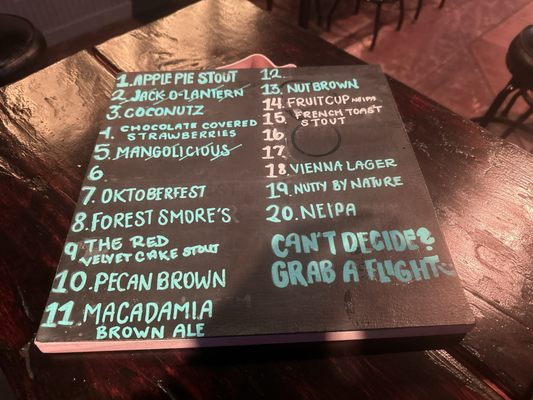 1. APPLE PIE STOUT
2. JACK-O-LANTERN
3. COCONUTZ
4. CHOCOLATE COVERED
STRAWBERRIES
5. MANGOLICIOUS
6.
7. OKTOBERFEST
8. FOREST SMORE'S
9. THE RED
VELVET CAKE STOUT
10. PECAN BROWN
11. MACADAMIA
BROWN ALE
12.
13. NUT BROWN
14. FRUIT CUP NEIPA
15. FRENCH TOAST
STOUT
16.
17.
18. VIENNA LAGER
19. NUTTY BY NATURE
20. NEIPA
CAN'T DECIDE?
GRAB A FLIGHT